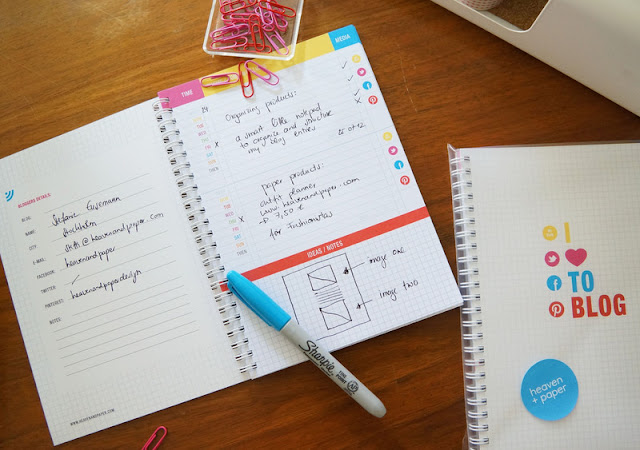 BLOGGERS DETAILS
BLOG:
NAME: Stefanie
CITY: Stockholm
E-MAIL: steffi@heavenandpaper.com
FACEBOOK: heavenandpaper
TWITTER:
PINTEREST: heavenandpaperdesign
NOTES:
WWW.HEAVENANDPAPER.COM
TIME
MEDIA
Organising products:
a smart little notepad
to organize and structure
my blog entries
paper products:
outfit planner
www.heavenandpaper.com
7,50 €
for Fashionistas
IDEAS / NOTES
image one
image two
Sharpie
FINE POINT
I
TO
BLOG
heaven
+ paper